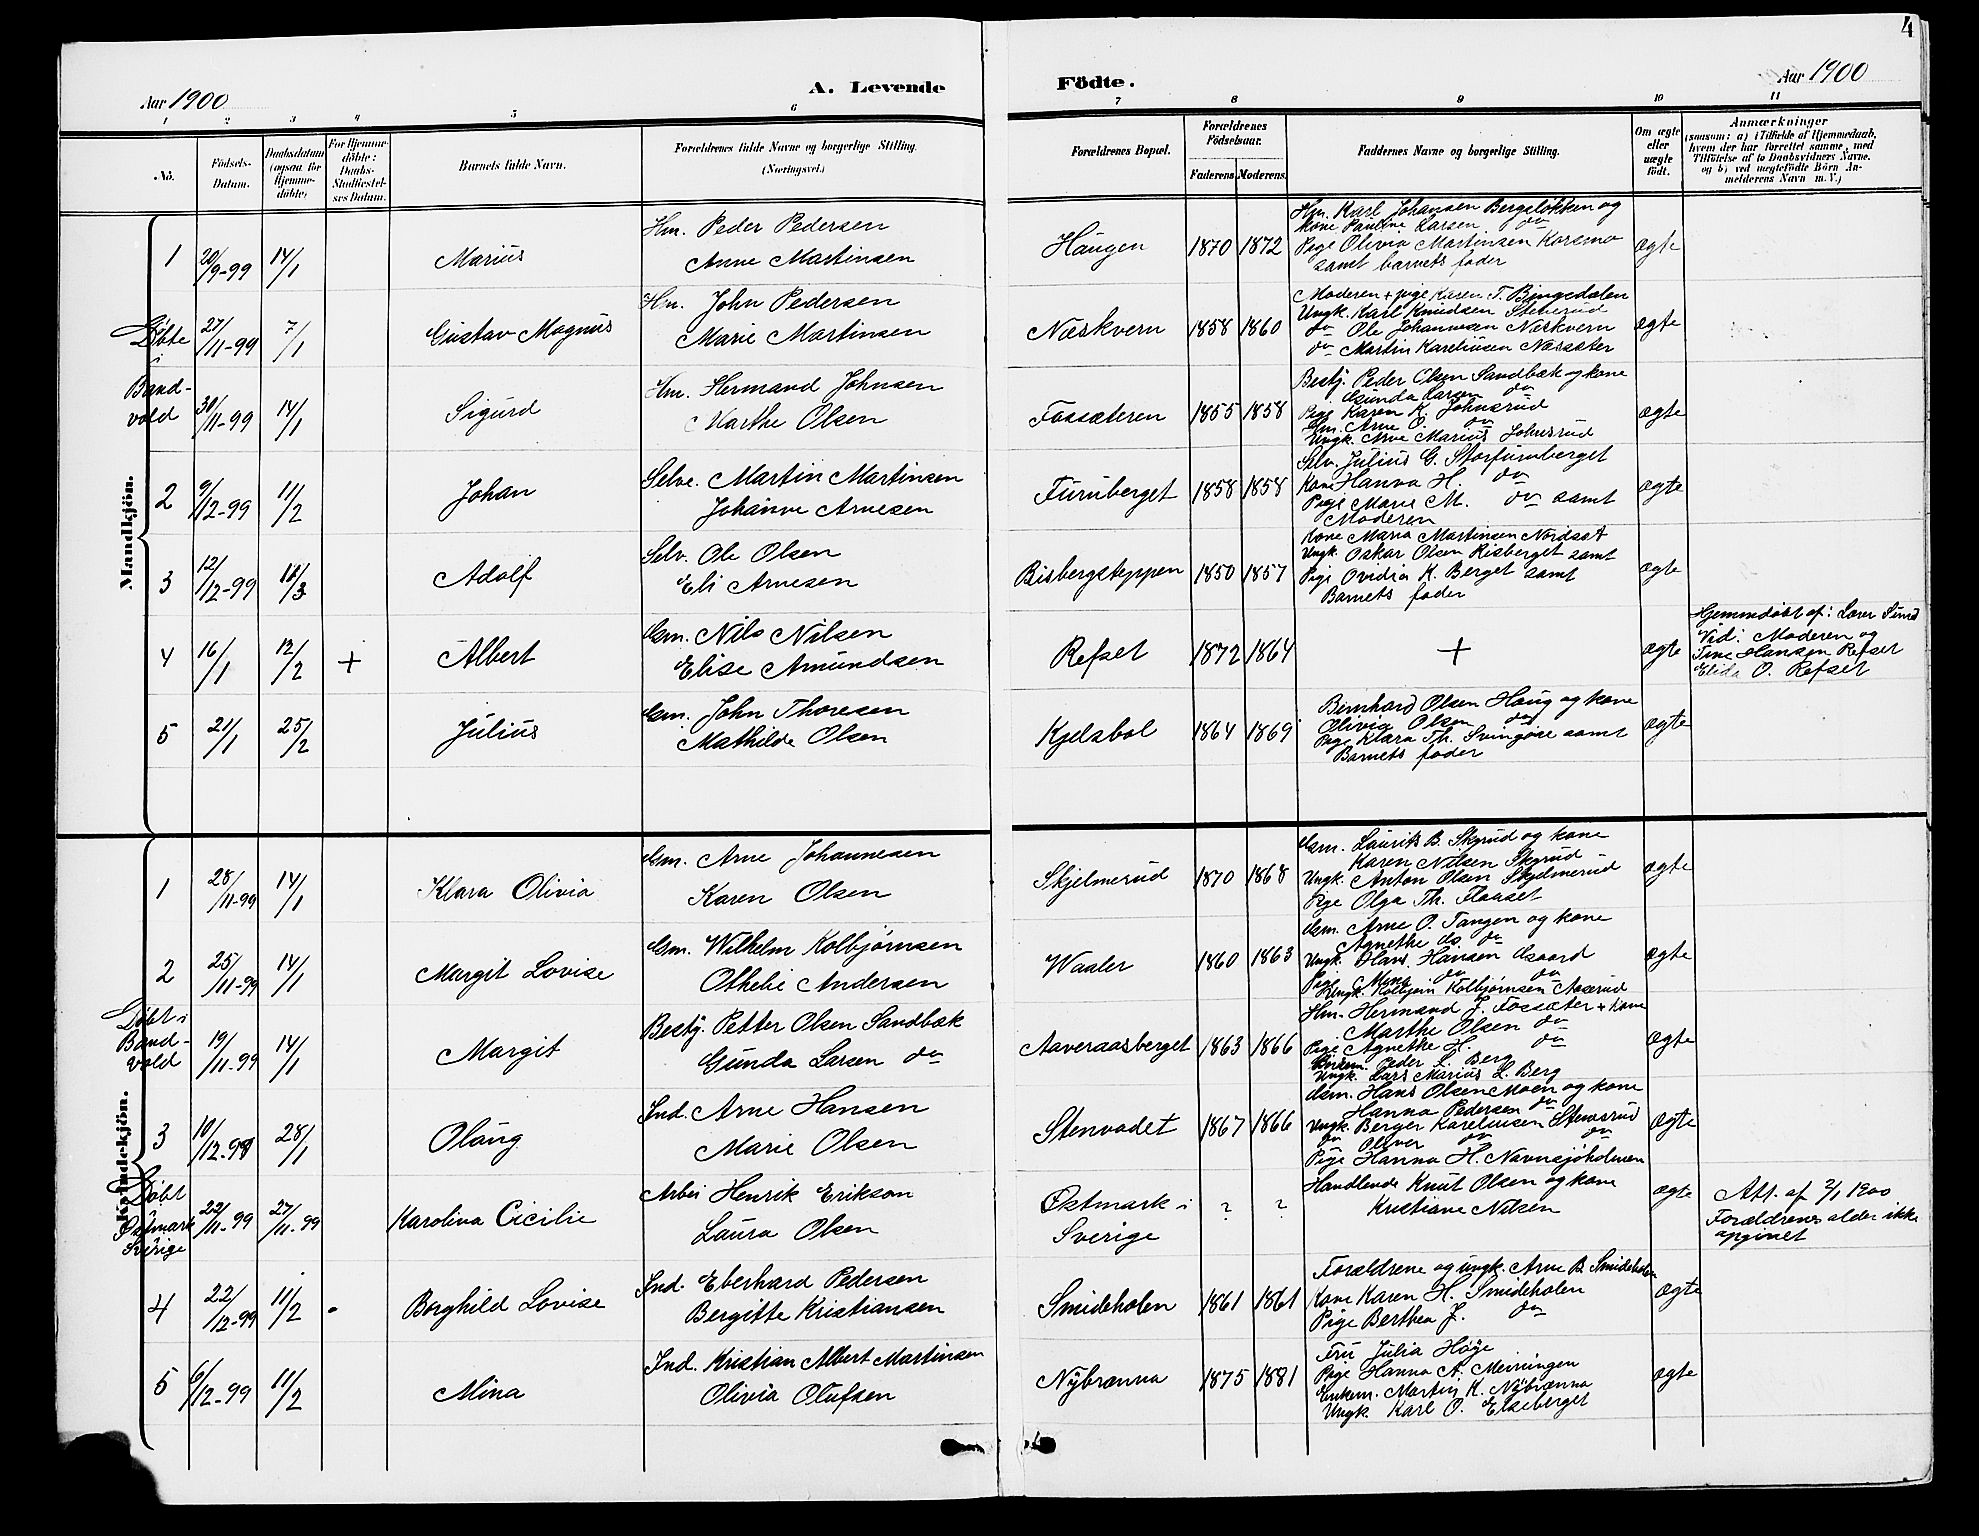 4
Aar 1900
A. Levende
Födte.
Aar 1900
1 2 3 4 5 6 7 8 9 10 11
No.
Födsels-Datum.
Daabsdatum (ogsaa for Hjemmedöbte)
For Hjemmedöbte: Daabs-Stadfæstelses Datum.
Barnets fulde Navn.
Forældrenes fulde Navne og borgerlige Stilling. (Næringsvei.)
Forældrenes Bopæl.
Forældrenes Födselsaar.
Faderens. Moderens.
Faddernes Navne og borgerlige Stilling.
Om ægte eller uægte födt.
Anmærkninger
(saasom: a) i Tilfælde af Hjemmedaab, hvem der har forrettet samme, med Tilføielse af to Daabsvidners Navne, og b) ved uægtefödte Börn Anmelderens Navn m. V.)
Mandkjön.
1 20/9-99 14/1 Marius
Hm. Peder Pedersen
Anne Martinsen
Haugen 1870 1872
Hm. Karl Johansen Bergsløkken og
kone Pauline Larsen do
Pige Olivia Martinsen Korsmo
samt barnets fader
ægte
Døbte i Brandvold
27/11-99 7/1 Gustav Magnus
Hm. John Pedersen
Marie Martinsen
Næskvern 1858 1860
Moderen + pige Karen T. Bingedalen
Ungk. Karl Knudsen Steberud
do Ole Johannesen Næskvern
do Martin Kareliusen Næssæter
ægte
30/11-99 14/1 Sigurd
Hm. Hermand Johnsen
Marthe Olsen
Fossæteren 1855 1858
Bestj. Peder Olsen Sandbæk og kone
Gunda Larsen do
Pige Karen K. Johnsrud
Em. Arne O. do
Ungk. Arve Marius Johnsrud
ægte
2 9/12-99 11/2 Johan
Selve. Martin Martinsen
Johanne Arnesen
Furuberget 1858 1858
Selv. Julius G. Storfuruberget
Kone Hanna H. do
Pige Marie M. do samt
Moderen
ægte
3 12/12-99 11/3 Adolf
Selv. Ole Olsen
Eli Arnesen
Bisbergsteppen 1850 1857
Kone Maria Martinsen Nordset
Ungk. Oskar Olsen Risberget samt
Pige Ovidia K. Berget samt
Barnets fader
ægte
4 16/1 12/2 + Albert
Gm. Nils Nilsen
Elise Amundsen
Refset 1872 1864 + ægte
Hjemmedøbt af: Lærer Sund
Vid: Moderen og
Tine Hansen Refset
Elida O. Refset
5 21/1 25/2 Julius
Gm. John Thoresen
Mathilde Olsen
Kjelsbøl 1864 1869
Bernhard Olsen Haug og kone
Olivia Olsen do
Pige Klara Th. Svingøie samt
Barnets fader
ægte
Kvindekjön.
1 28/11-99 14/1 Klara Olivia
Gm. Arne Johannesen
Karen Olsen
Skjelmerud 1870 1868
Gm. Laurits B. Skyrud og kone
Karen Nilsen Skyrud
Ungk. Anton Olsen Skjelmerud
Pige Olga Th. Flaaset
ægte
2 25/11-99 14/1 Margit Lovise
Gm. Wilhelm Kolbjørnsen
Othelie Andersen
Waaler 1860 1863
Gm. Arne O. Tangen og kone
Agnethe do. do
Ungk. Hans Hansen
Pige Mina do do
Ungk. Kolbjørn Kolbjørnsen Aaserud
ægte
Døbt i Brandvold
19/11-99 14/1 Margit
Bestj. Petter Olsen Sandbæk
Gunda Larsen do
Aaveraasberget 1863 1866
Hm. Hermand J. Fossæter + kone
Marthe Olsen do
Pige Agnethe H. do
Peder L. Berg
Ungk. Lars Marius L. Berg
ægte
3 10/12-99 28/1 Olaug
Ind. Arne Hansen
Marie Olsen
Stenvadet 1867 1866
Gm. Hans Olsen Moen og kone
Hanna Pedersen do
Ungk. Berger Kareliusen Stensrud
do Oliver do do
Pige Hanna H. Navnsjøholmen
ægte
Døbt Østmark Sverige
22/11-99 27/11-99 Karolina Cicilie
Arbei Henrik Erikson
Laura Olsen
Østmark i
Sverige
? ?
Handlende Knut Olsen og kone
Kristiane Nilsen
ægte
Att. af 2/1 1900
Forældrenes alder ikke
opgivet
4 22/12-99 11/2 Borghild Lovise
Ind. Eberhard Pedersen
Bergitte Kristiansen
Smideholen 1861 1861
Forældrene og ungk. Arne B. Smideholen
Kone Karen H. Smideholen
Pige Berthea J. do
ægte
5 6/12-99 11/2 Mina
Ind. Kristian Albert Martinsen
Olivia Olufsen
Nybrænna 1875 1881
Fru Julia Høje
Pige Hanna A. Meiningen
Enkem. Martin K. Nybrænna
Ungk. Karl O. Elseberget
ægte